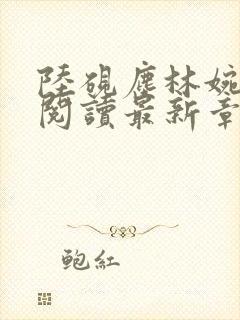 陸硯塵林婉
閱讀最新章
鮑紅